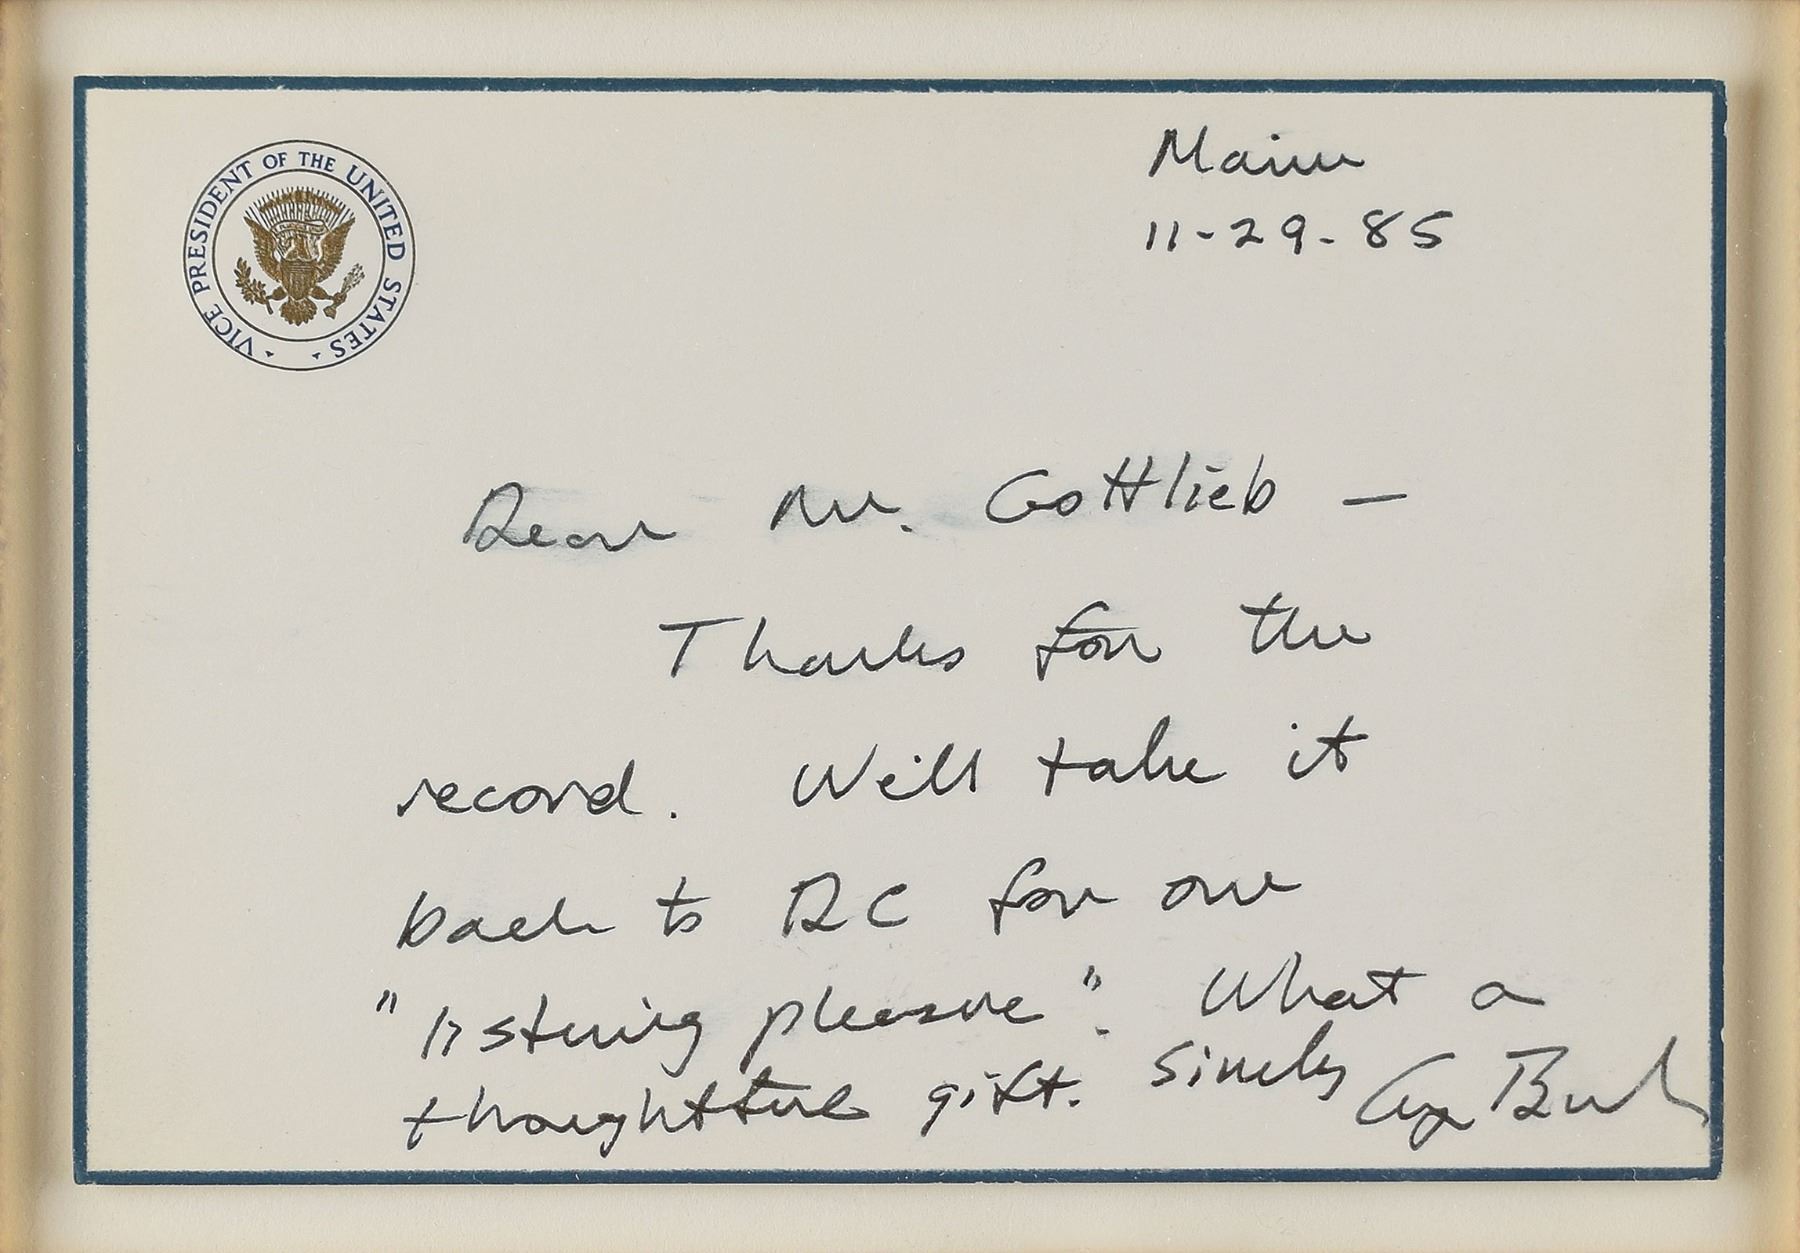 VICE PRESIDENT OF THE UNITED STATES
Maine
11-29-85
Dear Mr. Gottlieb —
Thanks for the
record. We'll take it
back to DC for our
"listening pleasure". What a
thoughtful gift. Sincerely George Bush